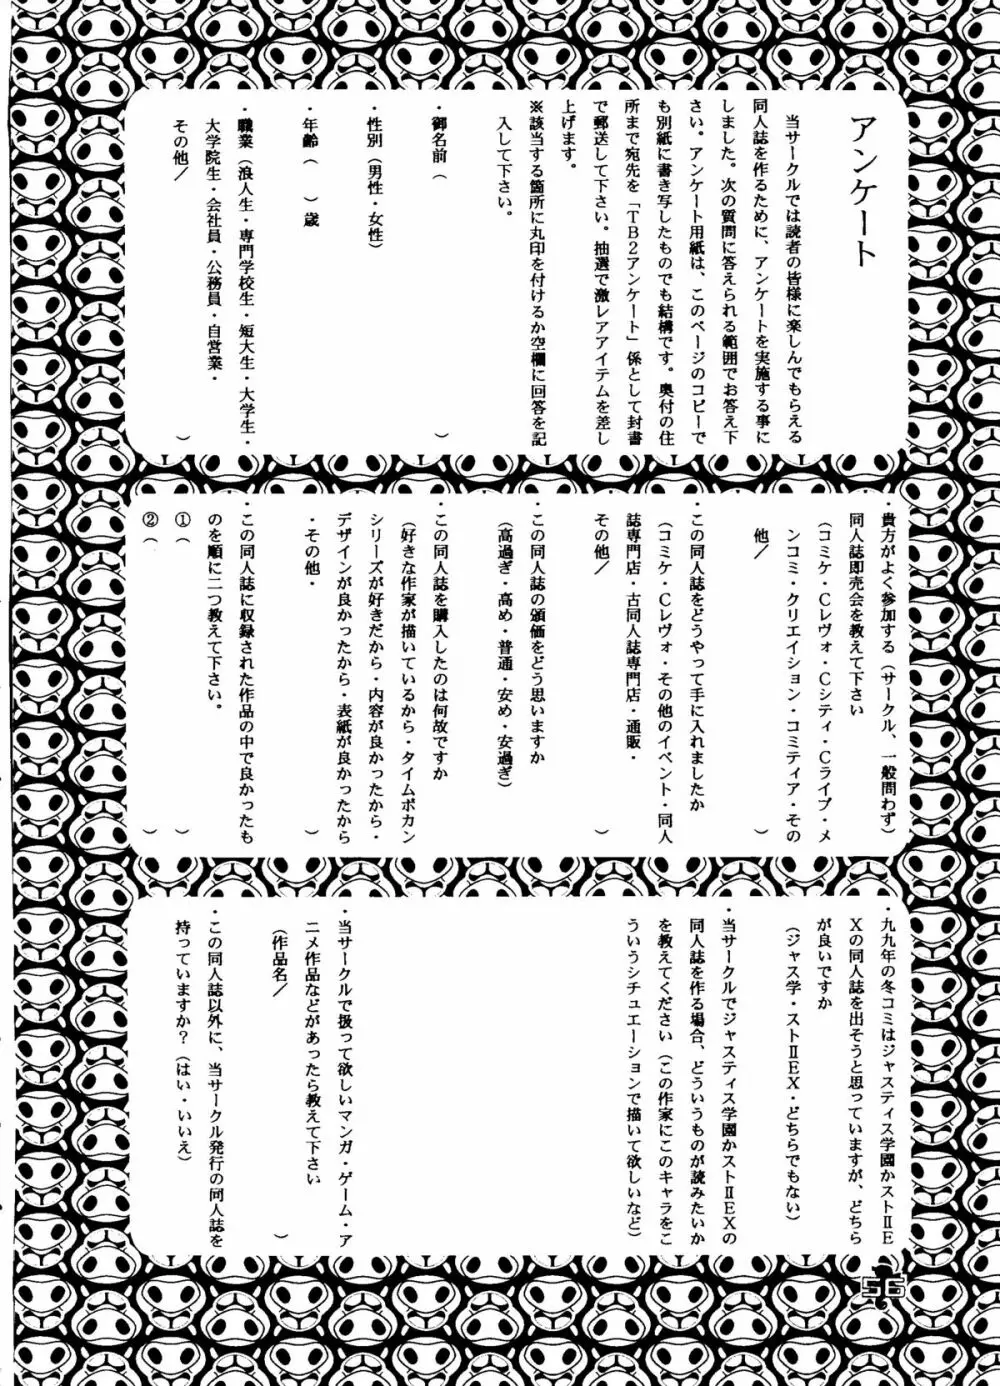 アンケート
当サークルでは読者の皆様に楽しんでもらえる
同人誌を作るために、アンケートを実施する事に
しました。次の質問に答えられる範囲でお答え下
さい。アンケート用紙は、このページのコピーで
も別紙に書き写したものでも結構です。奥付の住
所まで宛先を「TB2アンケート」係として封書
で郵送して下さい。抽選で激レアアイテムを差し
上げます。
※該当する箇所に丸印を付けるか空欄に回答を記
入して下さい。
・御名前（　　　）
・性別（男性・女性）
・年齢（　　）歳
・職業（浪人生・専門学校生・短大生・大学生・
大学院生・会社員・公務員・自営業・
その他／　　　）
・貴方がよく参加する（サークル、一般問わず）
同人誌即売会を教えて下さい
（コミケ・Cレヴォ・Cシティ・Cライブ・メ
ンコミ・クリエイション・コミティア・その
他／　　　）
・この同人誌をどうやって手に入れましたか
（コミケ・Cレヴォ・その他のイベント・同人
誌専門店・古同人誌専門店・通販・
その他／　　　）
・この同人誌の頒価をどう思いますか
（高過ぎ・高め・普通・安め・安過ぎ）
・この同人誌を購入したのは何故ですか
（好きな作家が描いているから・タイムボカン
シリーズが好きだから・内容が良かったから・
デザインが良かったから・表紙が良かったから
・その他・　　　）
・この同人誌に収録された作品の中で良かったも
のを順に二つ教えて下さい。
①（　　　）
②（　　　）
・九九年の冬コミはジャスティス学園かストⅡE
Xの同人誌を出そうと思っていますが、どちら
が良いですか
（ジャス学・ストⅡEX・どちらでもない）
・当サークルでジャスティス学園かストⅡEXの
同人誌を作る場合、どういうものが読みたいか
を教えてください（この作家にこのキャラをこ
ういうシチュエーションで描いて欲しいなど）
・当サークルで扱って欲しいマンガ・ゲーム・ア
ニメ作品などがあったら教えて下さい
（作品名／　　　）
・この同人誌以外に、当サークル発行の同人誌を
持っていますか？（はい・いいえ）
56